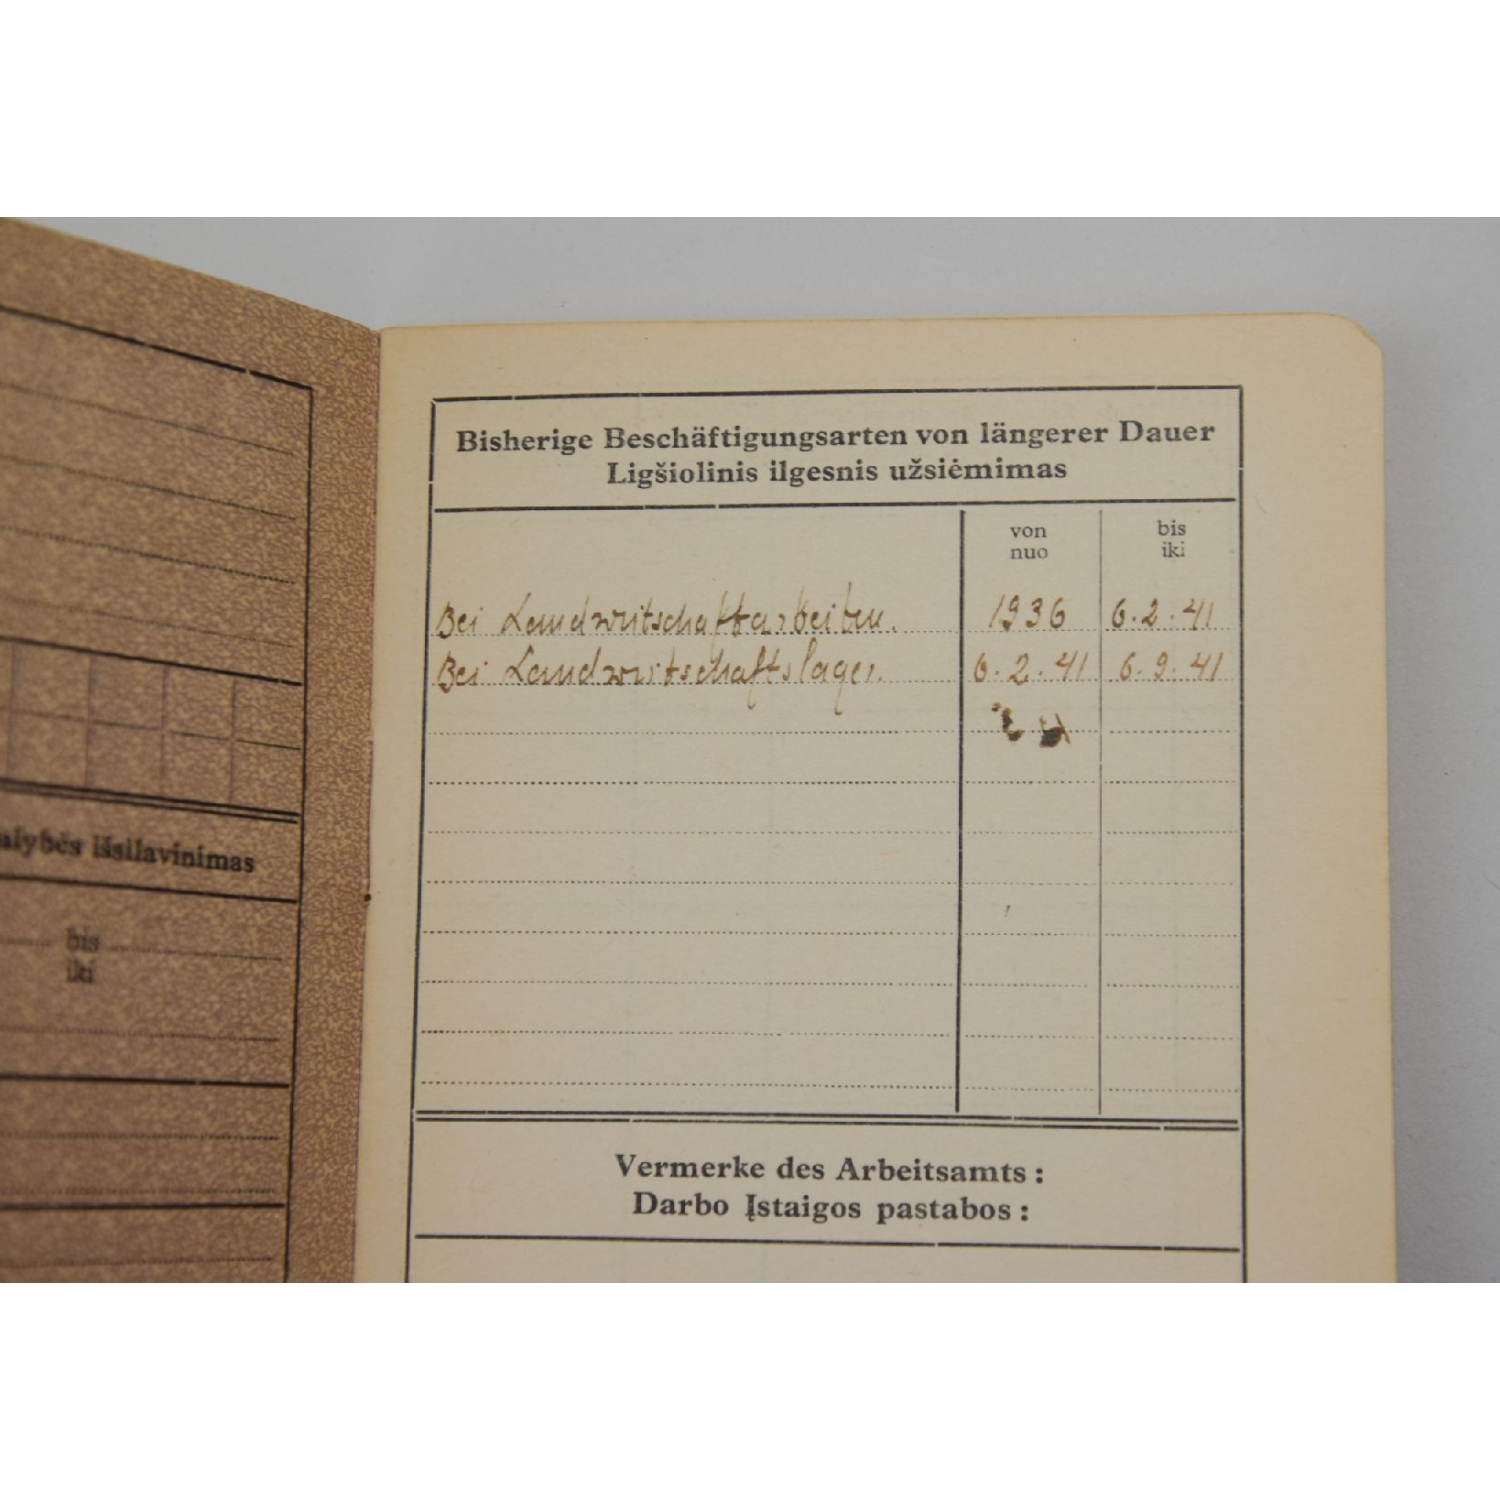 alybės išsilavinimas
bis
iki
Bisherige Beschäftigungsarten von längerer Dauer
Ligšiolinis ilgesnis užsiėmimas
von bis
nuo iki
Bei Landwirtschaftarbeiten. 1936 6.2.41
Bei Landwirtschaftslager. 6.2.41 6.9.41
Vermerke des Arbeitsamts:
Darbo Įstaigos pastabos: